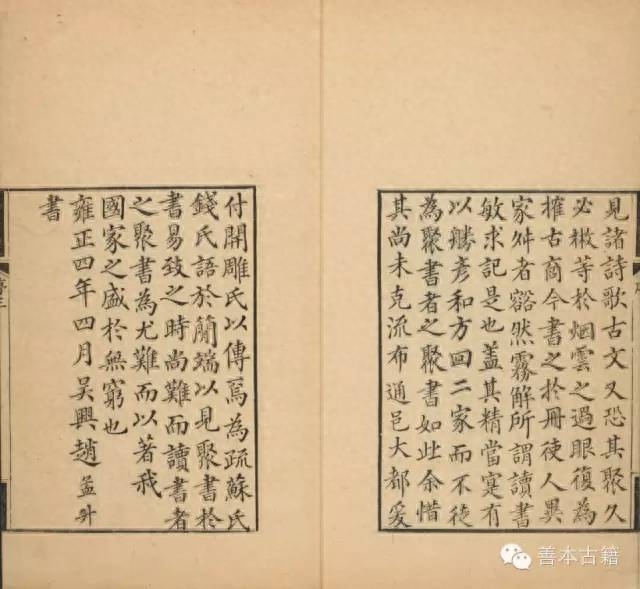 見諸詩歌古文又恐其聚久
必散等於烟雲之過眼復為
搉古商今書之於冊使人異
家舛者谿然霧解所謂讀書
敏求記是也蓋其精當寔有
以勝彥和方回二家而不徒
為聚書者之聚書如此余惜
其尚未克流布通邑大都爰
付開雕氏以傳焉為疏蘇氏
錢氏語於簡端以見聚書於
書易致之時尚難而讀書者
之聚書為尤難而以著我
國家之盛於無窮也
雍正四年四月吳興趙孟升
書
序二
善本古籍